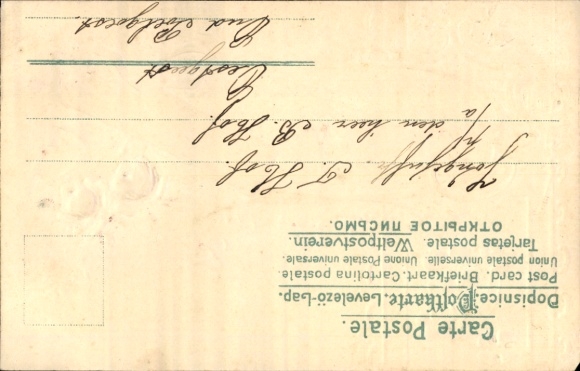 Carte Postale.
Dopisnice. Postkarte. Levelező-Lap.
Post card. Briefkaart. Cartolina postale.
Union postale universelle. Unione Postale universale.
Tarjetas postale. Weltpostverein.
ОТКРЫТОЕ ПИСЬМО.
T. Hof.
a den heer B. Hof.
Oestgeest
Oud Poelgeest.